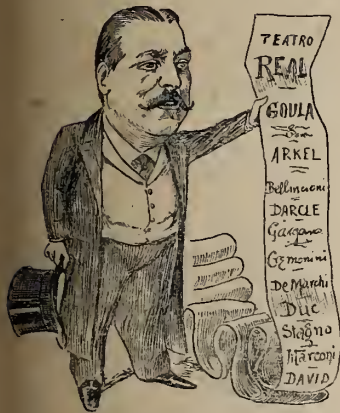 TEATRO
REAL
GOULA
ARKEL
Bellincioni
DARCLE
Gargano
De Marchi
Duc
Stagno
Marconi
DAVID